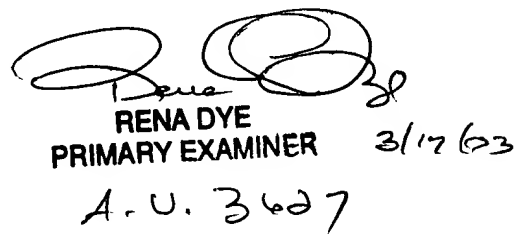 Rena Dye
RENA DYE
PRIMARY EXAMINER 3/17/03
A.U. 3627